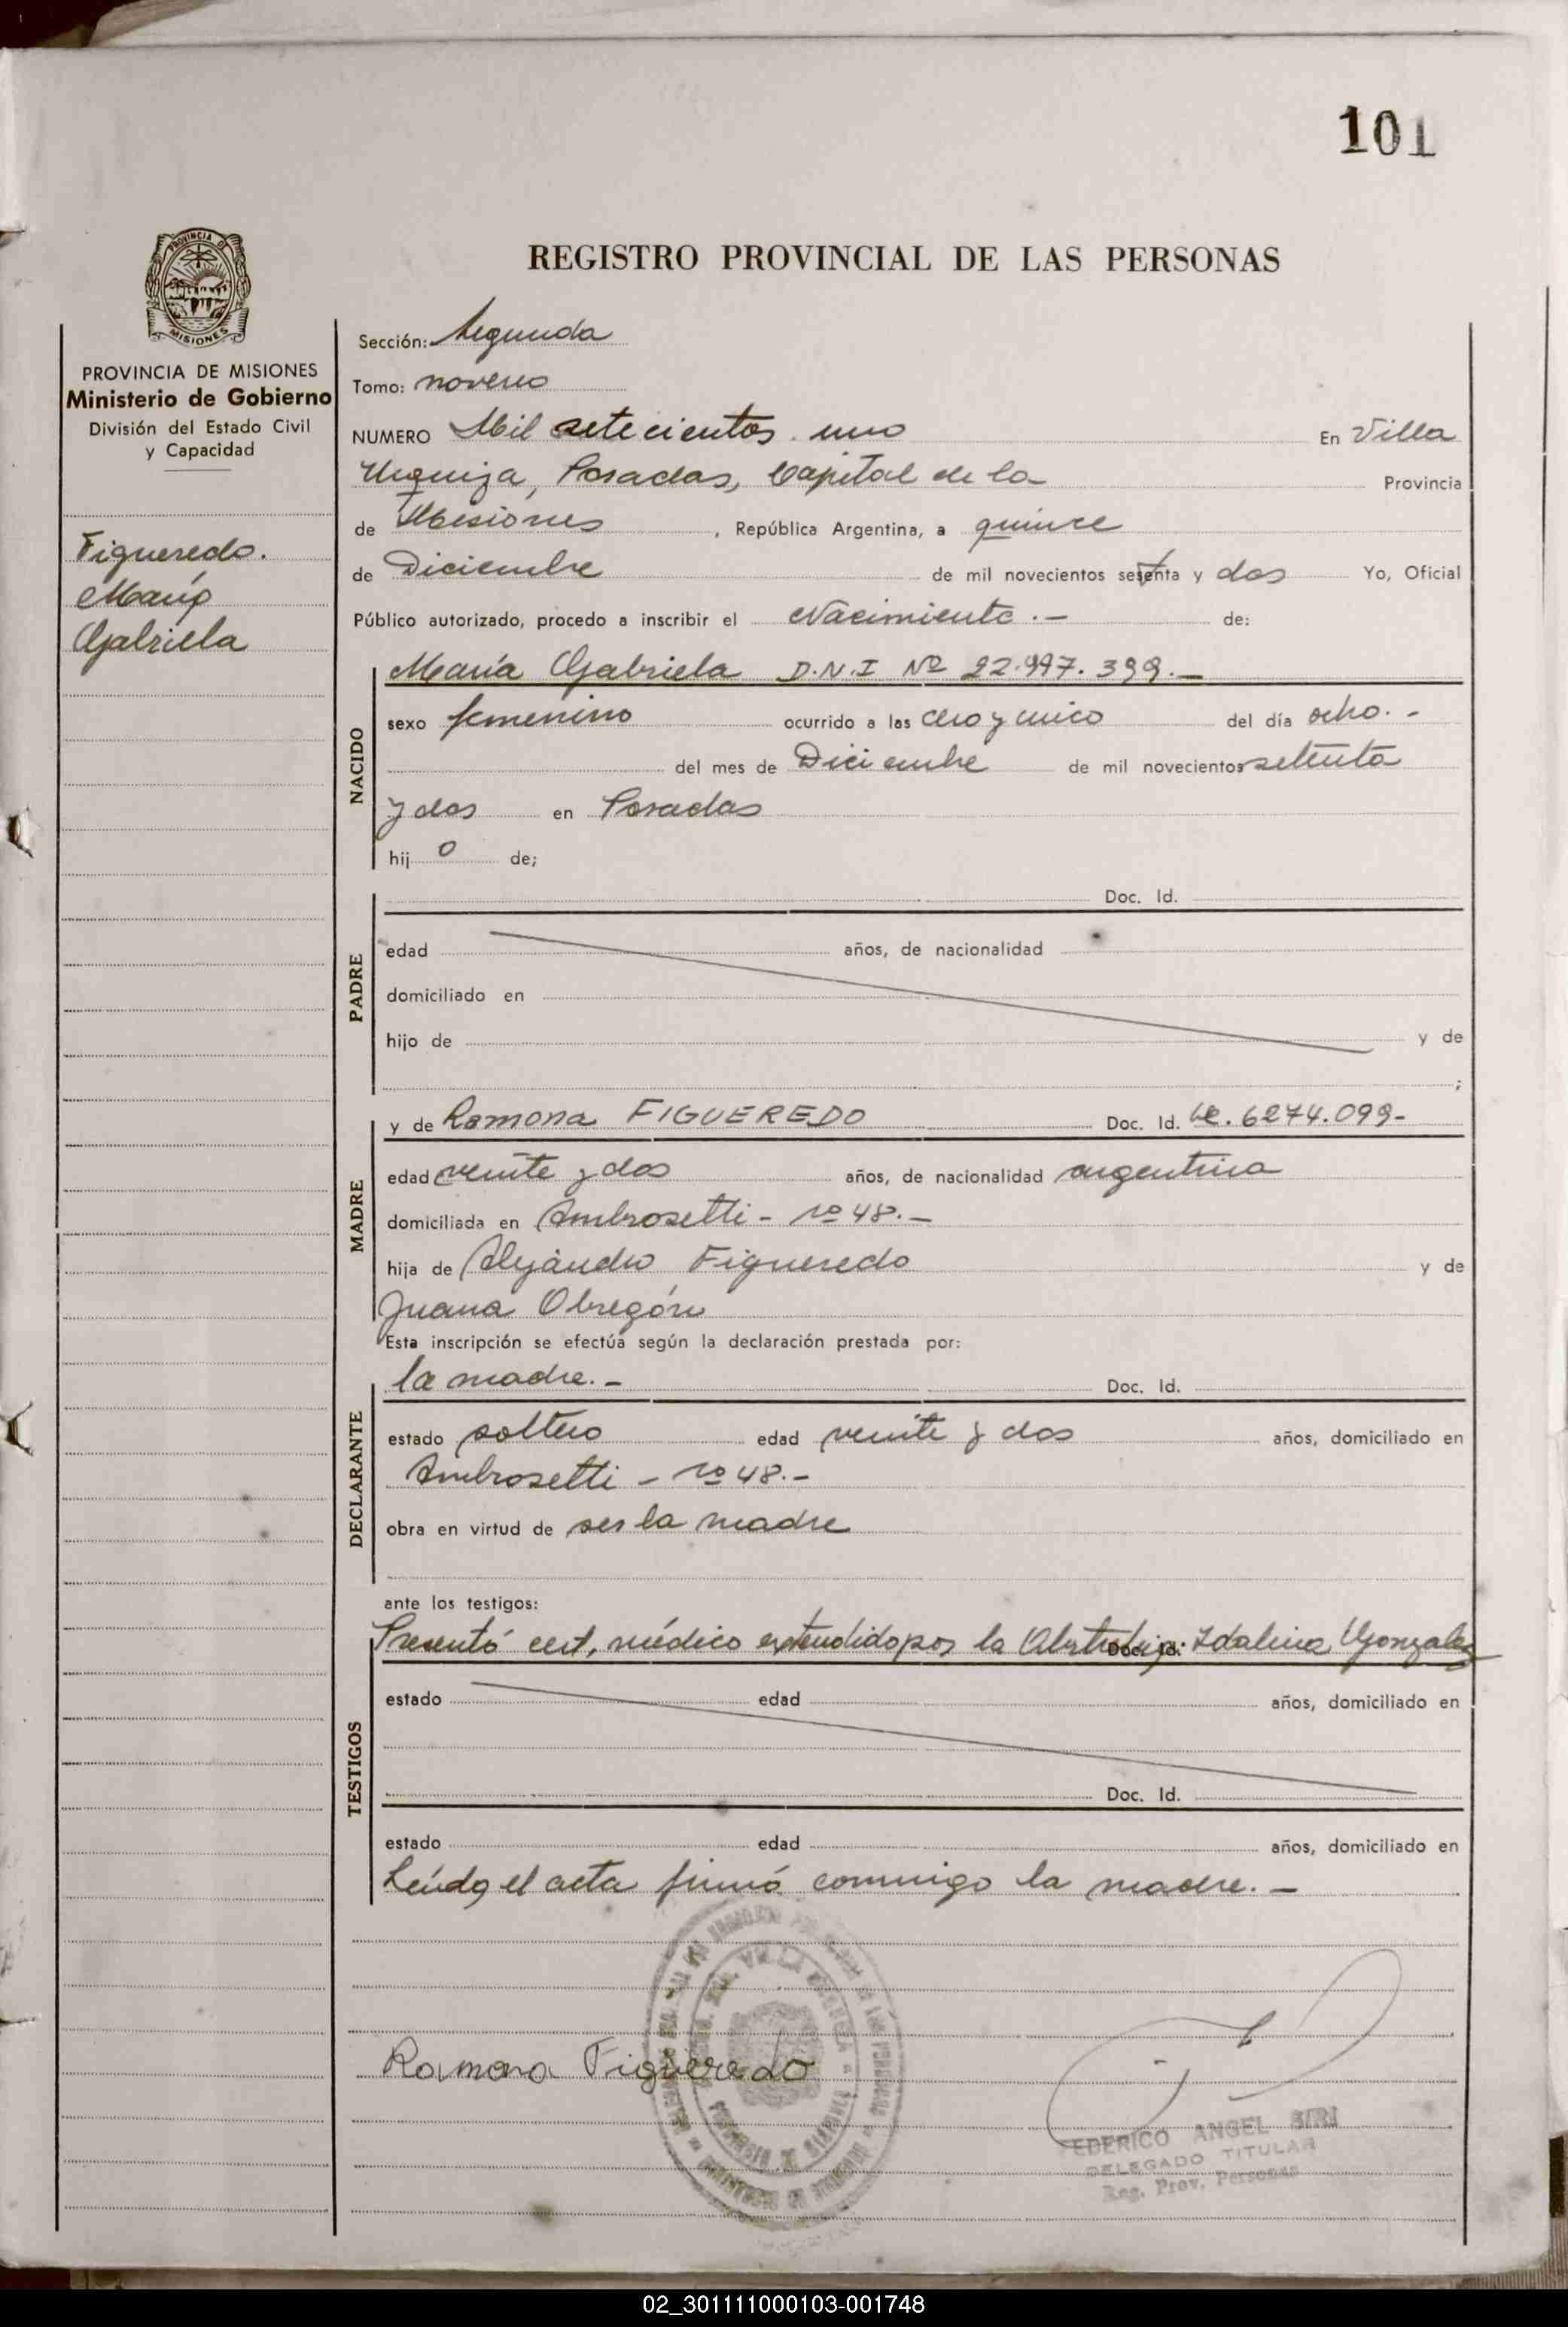 101
PROVINCIA DE
MISIONES
PROVINCIA DE MISIONES
Ministerio de Gobierno
División del Estado Civil
y Capacidad
Figueredo.
María
Gabriela
REGISTRO PROVINCIAL DE LAS PERSONAS
Sección: Segunda
Tomo: noveno
NUMERO Mil setecientos uno En Villa
Urquiza, Posadas, Capital de la Provincia
de Misiones, República Argentina, a quince
de Diciembre de mil novecientos setenta y dos Yo, Oficial
Público autorizado, procedo a inscribir el Nacimiento.- de:
NACIDO
María Gabriela D.N.I Nº 22.997.399.-
sexo femenino ocurrido a las cero y cinco del día ocho.-
del mes de Diciembre de mil novecientos setenta
y dos en Posadas
hij o de;
PADRE
Doc. Id.
edad años, de nacionalidad
domiciliado en
hijo de y de
;
MADRE
y de Ramona FIGUEREDO Doc. Id. 6274.099-
edad veinte y dos años, de nacionalidad argentina
domiciliada en Ambrosetti - nº 48.-
hija de Alejandro Figueredo y de
Juana Obregón
Esta inscripción se efectúa según la declaración prestada por:
DECLARANTE
la madre.- Doc. Id.
estado soltero edad veinte y dos años, domiciliado en
Ambrosetti - nº 48.-
obra en virtud de ser la madre
ante los testigos:
TESTIGOS
Presentó cert, médico extendido por la Doc. Id. Idalina Gonzalez
estado edad años, domiciliado en
Doc. Id.
estado edad años, domiciliado en
Leída el acta firmó conmigo la madre.-
Ramona Figueredo
FEDERICO ANGEL SIRI
DELEGADO TITULAR
Reg. Prov. Personas
02_301111000103-001748